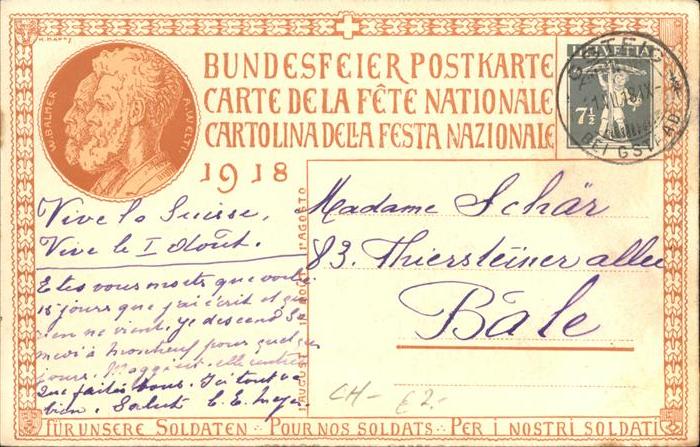 BUNDESFEIER POSTKARTE
CARTE DE LA FÊTE NATIONALE
CARTOLINA DELLA FESTA NAZIONALE
1918
W. BALMER
A. WELTI
HELVETIA
7½
GSTEIG
BEI GSTAAD
Vive la Suisse,
Vive le I Août.
Etes vous morts que voilà
15 jours que j'ai écrit et que
rien ne vient. Je descend Sa
medi à Montreux pour quelques
jours. Maggie est elle rentrée
Que faites vous. Ici tout va
bien. Salut E. E. Meyer
Madame Schär
83. Thiersteinerallee
Bâle
1. AUGUST 1er AOÛT 1º AGOSTO
CH- £2.-
FÜR UNSERE SOLDATEN · POUR NOS SOLDATS · PER I NOSTRI SOLDATI